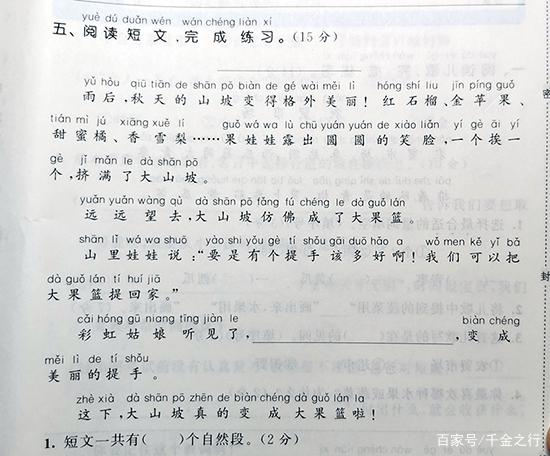 yuè dú duǎn wén wán chéng liàn xí
五、阅读短文,完成练习。(15分)
yǔ hòu qiū tiān de shān pō biàn de gé wài měi lì hóng shí liu jīn píng guǒ
雨后,秋天的山坡变得格外美丽!红石榴、金苹果、
tián mì jú xiāng xuě lí guǒ wá wa lù chū yuán yuán de xiào liǎn yí gè āi yí
甜蜜橘、香雪梨……果娃娃露出圆圆的笑脸,一个挨一
gè jǐ mǎn le dà shān pō
个,挤满了大山坡。
yuǎn yuǎn wàng qù dà shān pō fǎng fú chéng le dà guǒ lán
远远望去,大山坡仿佛成了大果篮。
shān lǐ wá wa shuō yào shi yǒu gè tí shǒu gāi duō hǎo a wǒ men kě yǐ bǎ
山里娃娃说:“要是有个提手该多好啊!我们可以把
dà guǒ lán tí huí jiā
大果篮提回家。”
cǎi hóng gū niang tīng jiàn le biàn chéng
彩虹姑娘听见了,变成
měi lì de tí shǒu
美丽的提手。
zhè xià dà shān pō zhēn de biàn chéng dà guǒ lán la
这下,大山坡真的变成大果篮啦!
1. 短文一共有( )个自然段。(2分)
密
封
百家号/千金之行